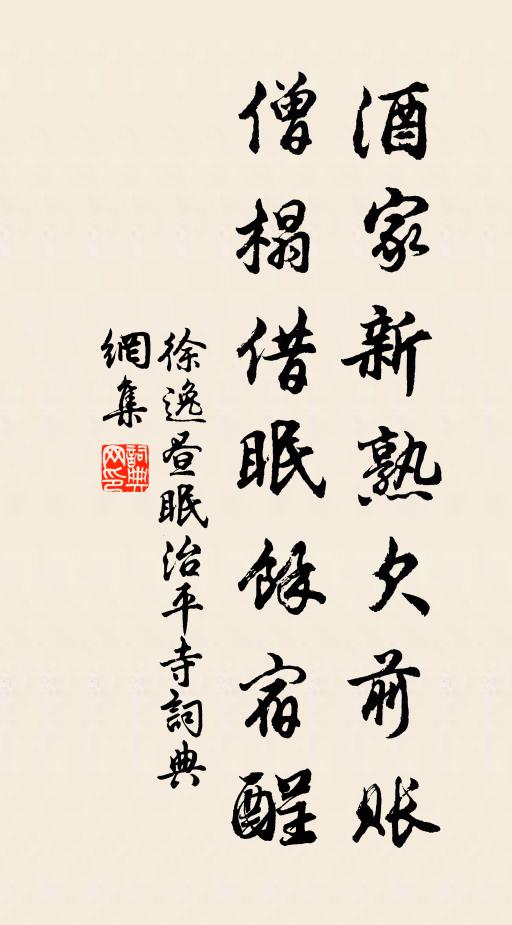 酒家新熟欠前賬
僧榻借眠餘宿酲
徐逸昼眠治平寺詞典
網集
詞典网印